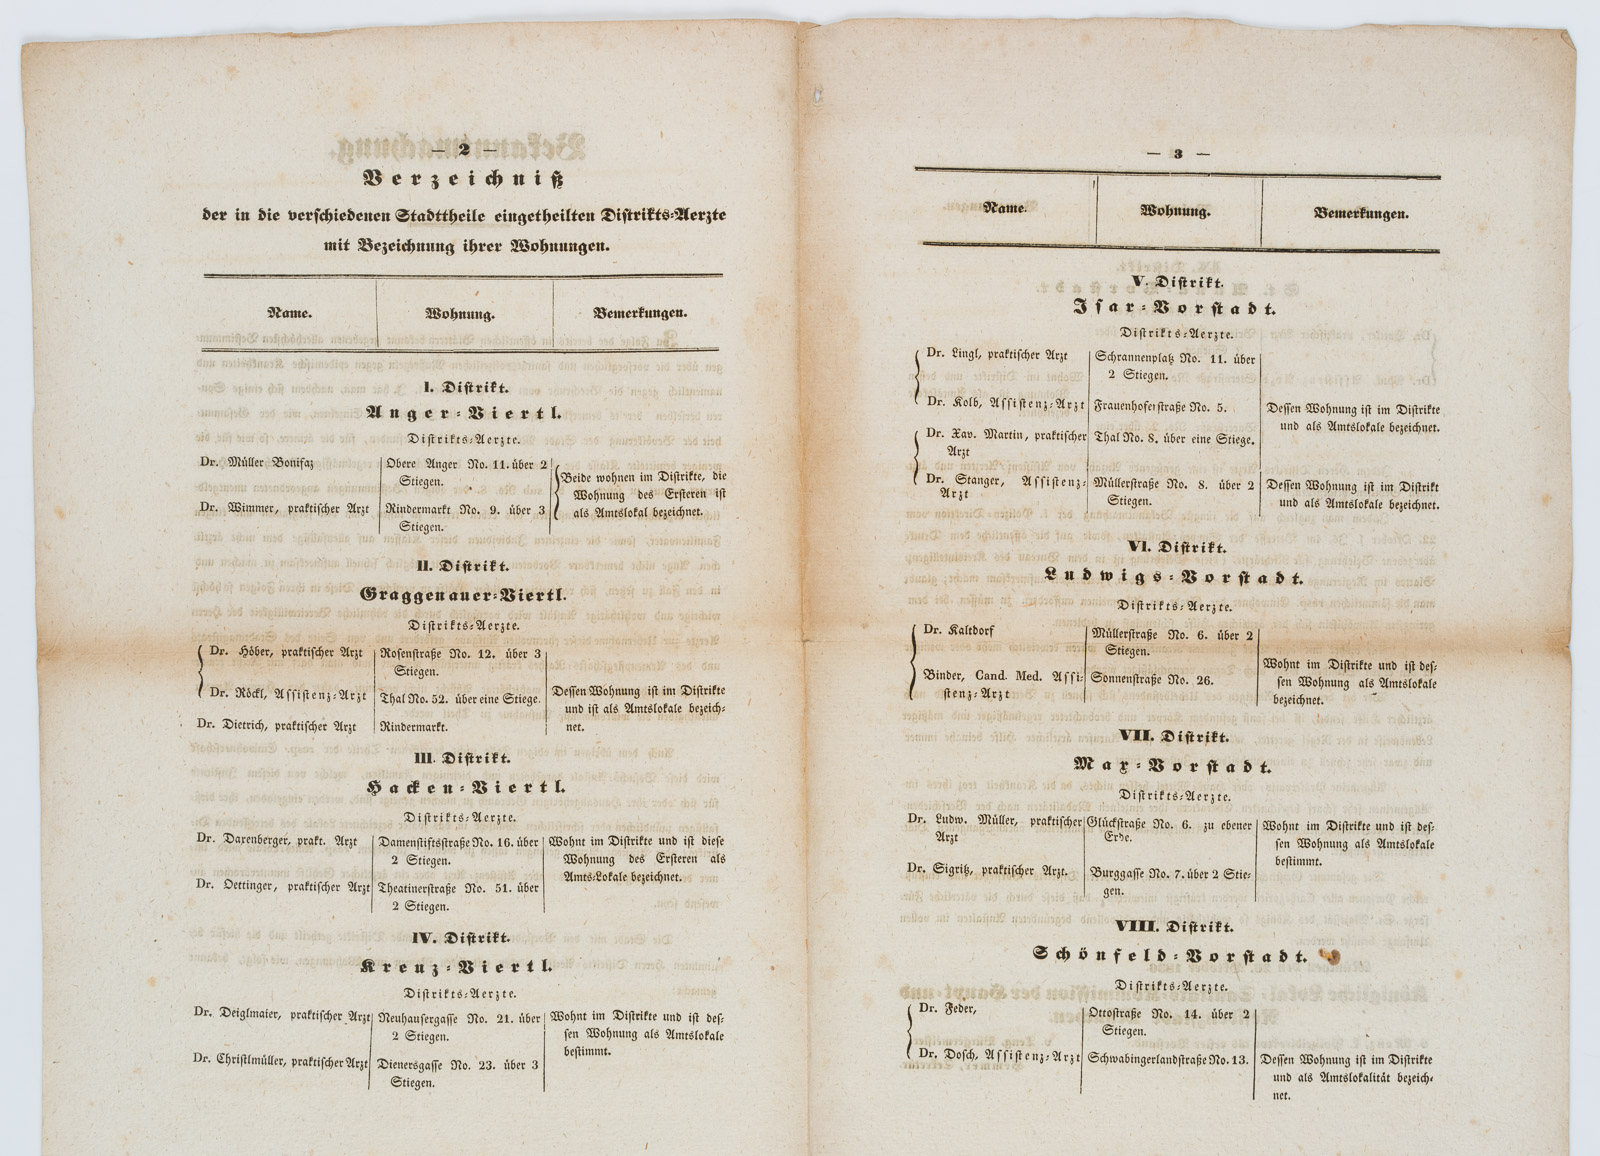 — 2 —
Verzeichniß
der in die verschiedenen Stadttheile eingetheilten Distrikts-Aerzte
mit Bezeichnung ihrer Wohnungen.
Name. Wohnung. Bemerkungen.
I. Distrikt.
Anger-Viertl.
Distrikts-Aerzte.
Dr. Müller Bonifaz Obere Anger No. 11. über 2
Stiegen.
Dr. Wimmer, praktischer Arzt Rindermarkt No. 9. über 3
Stiegen.
Beide wohnen im Distrikte, die
Wohnung des Ersteren ist
als Amtslokal bezeichnet.
II. Distrikt.
Graggenauer-Viertl.
Distrikts-Aerzte.
Dr. Höber, praktischer Arzt Rosenstraße No. 12. über 3
Stiegen.
Dr. Röckl, Assistenz-Arzt Thal No. 52. über eine Stiege. Dessen Wohnung ist im Distrikte
und ist als Amtslokale bezeich-
net.
Dr. Dietrich, praktischer Arzt Rindermarkt.
III. Distrikt.
Hacken-Viertl.
Distrikts-Aerzte.
Dr. Darenberger, prakt. Arzt Damenstiftsstraße No. 16. über
2 Stiegen.
Wohnt im Distrikte und ist diese
Wohnung des Ersteren als
Amts-Lokale bezeichnet.
Dr. Oettinger, praktischer Arzt Theatinerstraße No. 51. über
2 Stiegen.
IV. Distrikt.
Kreuz-Viertl.
Distrikts-Aerzte.
Dr. Deiglmaier, praktischer Arzt Neuhausergasse No. 21. über
2 Stiegen.
Wohnt im Distrikte und ist des-
sen Wohnung als Amtslokale
bestimmt.
Dr. Christlmüller, praktischer Arzt Dienersgasse No. 23. über 3
Stiegen.
— 3 —
Name. Wohnung. Bemerkungen.
V. Distrikt.
Isar-Vorstadt.
Distrikts-Aerzte.
Dr. Lingl, praktischer Arzt Schrannenplatz No. 11. über
2 Stiegen.
Dr. Kolb, Assistenz-Arzt Frauenhoferstraße No. 5. Dessen Wohnung ist im Distrikte
und als Amtslokale bezeichnet.
Dr. Xav. Martin, praktischer
Arzt
Thal No. 8. über eine Stiege.
Dr. Stanger, Assistenz-
Arzt
Müllerstraße No. 8. über 2
Stiegen.
Dessen Wohnung ist im Distrikt
und als Amtslokale bezeichnet.
VI. Distrikt.
Ludwigs-Vorstadt.
Distrikts-Aerzte.
Dr. Kaltdorf Müllerstraße No. 6. über 2
Stiegen.
Binder, Cand. Med. Assi-
stenz-Arzt
Sonnenstraße No. 26.
Wohnt im Distrikte und ist des-
sen Wohnung als Amtslokale
bezeichnet.
VII. Distrikt.
Max-Vorstadt.
Distrikts-Aerzte.
Dr. Ludw. Müller, praktischer
Arzt
Glückstraße No. 6. zu ebener
Erde.
Wohnt im Distrikte und ist des-
sen Wohnung als Amtslokale
bestimmt.
Dr. Sigritz, praktischer Arzt. Burggasse No. 7. über 2 Stie-
gen.
VIII. Distrikt.
Schönfeld-Vorstadt.
Distrikts-Aerzte.
Dr. Feder, Ottostraße No. 14. über 2
Stiegen.
Dr. Dosch, Assistenz-Arzt Schwabingerlandstraße No. 13. Dessen Wohnung ist im Distrikte
und als Amtslokalität bezeich-
net.